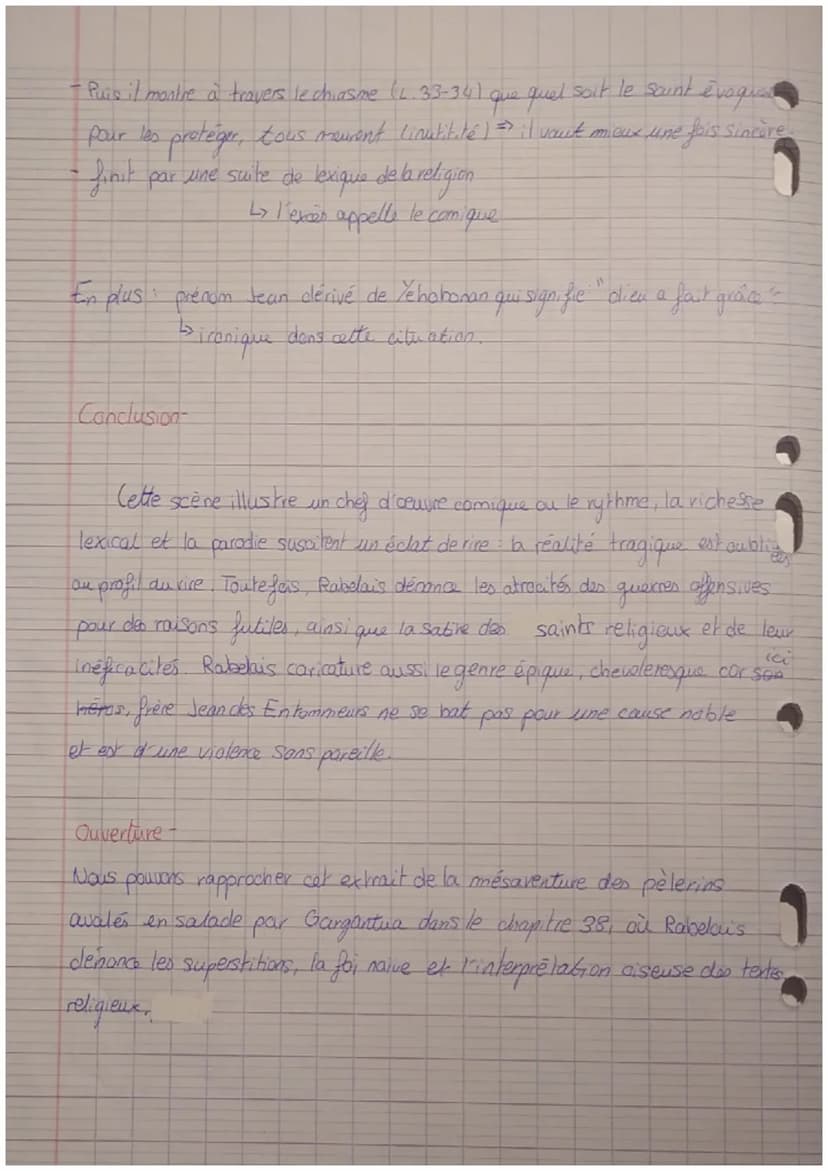 - Puis il montre à travers le chiasme (L.33-34) que quel soit le saint évoqué
pour les protéger, tous meurent (inutilité) => il vaut mieux une fois sincère.
- finit par une suite de lexique de la religion
↳ l'excès appelle le comique
En plus : prénom Jean dérivé de Yehohonan qui signifie "dieu a fait grâce"
↳ ironique dans cette cituation.
Conclusion-
Cette scène illustre un chef d'œuvre comique ou le rythme, la richesse
lexical et la parodie suscitent un éclat de rire : la réalité tragique est oubliées
au profil du rire. Toutefois, Rabelais dénonce les atrocités des guerres offensives
pour des raisons futiles, ainsi que la satire des saints religieux et de leur
inéficacités. Rabelais caricature aussi le genre épique, chevaleresque car son ici
héros, frère Jean des Entommeurs ne se bat pas pour une cause noble
et est d'une violence sans pareille.
Ouverture -
Nous pouvons rapprocher cet extrait de la mésaventure des pèlerins
avalés en salade par Gargantua dans le chapitre 38, où Rabelais
dénonce les superstitions, la foi naive et l'interprétation oiseuse des textes
religieux.